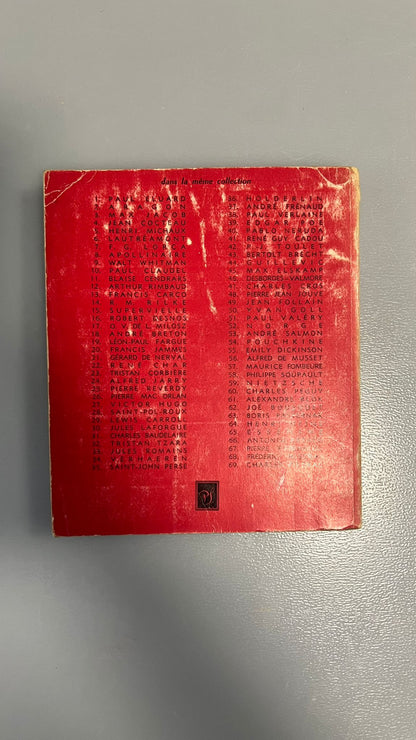 dans la même collection
1. PAUL ÉLUARD
2. ARAGON
3. MAX JACOB
4. JEAN COCTEAU
5. HENRI MICHAUX
6. LAUTRÉAMONT
7. F. G. LORCA
8. APOLLINAIRE
9. WALT WHITMAN
10. PAUL CLAUDEL
11. BLAISE CENDRARS
12. ARTHUR RIMBAUD
13. FRANCIS CARCO
14. R. M. RILKE
15. SUPERVIELLE
16. ROBERT DESNOS
17. O. V. DE L. MILOSZ
18. ANDRÉ BRETON
19. LÉON-PAUL FARGUE
20. FRANCIS JAMMES
21. GÉRARD DE NERVAL
22. RENÉ CHAR
23. TRISTAN CORBIÈRE
24. ALFRED JARRY
25. PIERRE REVERDY
26. PIERRE MAC ORLAN
27. VICTOR HUGO
28. SAINT-POL-ROUX
29. LEWIS CARROLL
30. JULES LAFORGUE
31. CHARLES BAUDELAIRE
32. TRISTAN TZARA
33. JULES ROMAINS
34. VERHAEREN
35. SAINT-JOHN PERSE
36. HOLDERLIN
37. ANDRÉ FRÉNAUD
38. PAUL VERLAINE
39. EDGAR POE
40. PABLO NERUDA
41. RENÉ-GUY CADOU
42. P. J. TOULET
43. BERTOLT BRECHT
44. GUILLEVIC
45. MAX ELSKAMP
46. DESBORDES-VALMORE
47. CHARLES CROS
48. PIERRE JEAN JOUVE
49. JEAN FOLLAIN
50. YVAN GOLL
51. PAUL VALÉRY
52. NORGE
53. ANDRÉ SALMON
54. POUCHKINE
55. EMILY DICKINSON
56. ALFRED DE MUSSET
57. MAURICE FOMBEURE
58. PHILIPPE SOUPAULT
59. NIETZSCHE
60. CHARLES
61. ALEXANDRE
62. JOË
63. BORIS
64. HENRI
65.
66. ANTONIO
67. PIERRE
68.
69.